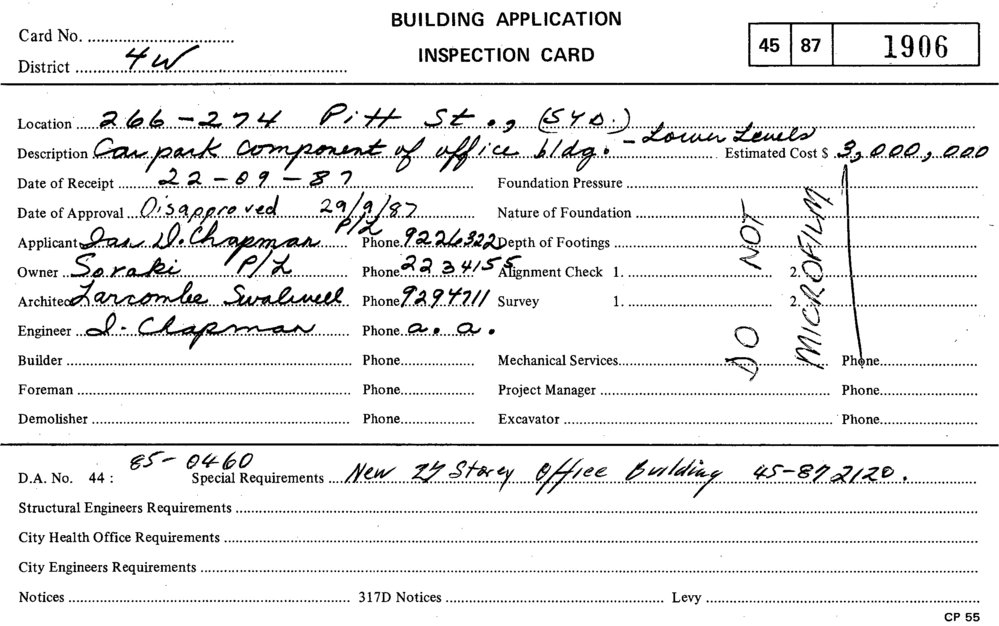 BUILDING APPLICATION
INSPECTION CARD
Card No.
District 4W
45 87 1906
Location 266-274 Pitt St., (SYD.)
Description Car park component of office bldg. - Lower Levels Estimated Cost $ 3,000,000
Date of Receipt 22-09-87 Foundation Pressure
Date of Approval Disapproved 29/9/87 Nature of Foundation
Applicant Ian D. Chapman P/L Phone 9226322 Depth of Footings
Owner Soraki P/L Phone 2234155 Alignment Check 1. 2.
Architect Larcombe Swalwell Phone 9294711 Survey 1. 2.
Engineer I. Chapman Phone a.a.
DO NOT
MICROFILM
Builder Phone Mechanical Services Phone
Foreman Phone Project Manager Phone
Demolisher Phone Excavator Phone
D.A. No. 44: 85-0460 Special Requirements New 27 Storey Office Building 45-87 2120.
Structural Engineers Requirements
City Health Office Requirements
City Engineers Requirements
Notices 317D Notices Levy
CP 55